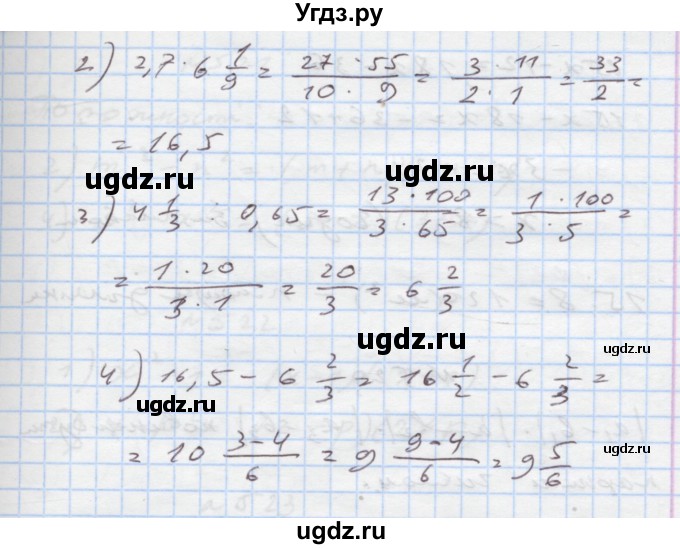 Угдз.ру
2) 2,7 · 6 1/9 = 27 · 55 / 10 · 9 = 3 · 11 / 2 · 1 = 33/2 =
= 16,5
ugdz.ru
ugdz.ru
3) 4 1/3 : 0,65 = 13 · 100 / 3 · 65 = 1 · 100 / 3 · 5 =
= 1 · 20 / 3 · 1 = 20/3 = 6 2/3
ugdz.ru
ugdz.ru
4) 16,5 - 6 2/3 = 16 1/2 - 6 2/3 =
ugdz.ru
= 10 3-4 / 6 = 9 9-4 / 6 = 9 5/6
ugdz.ru
ugdz.ru